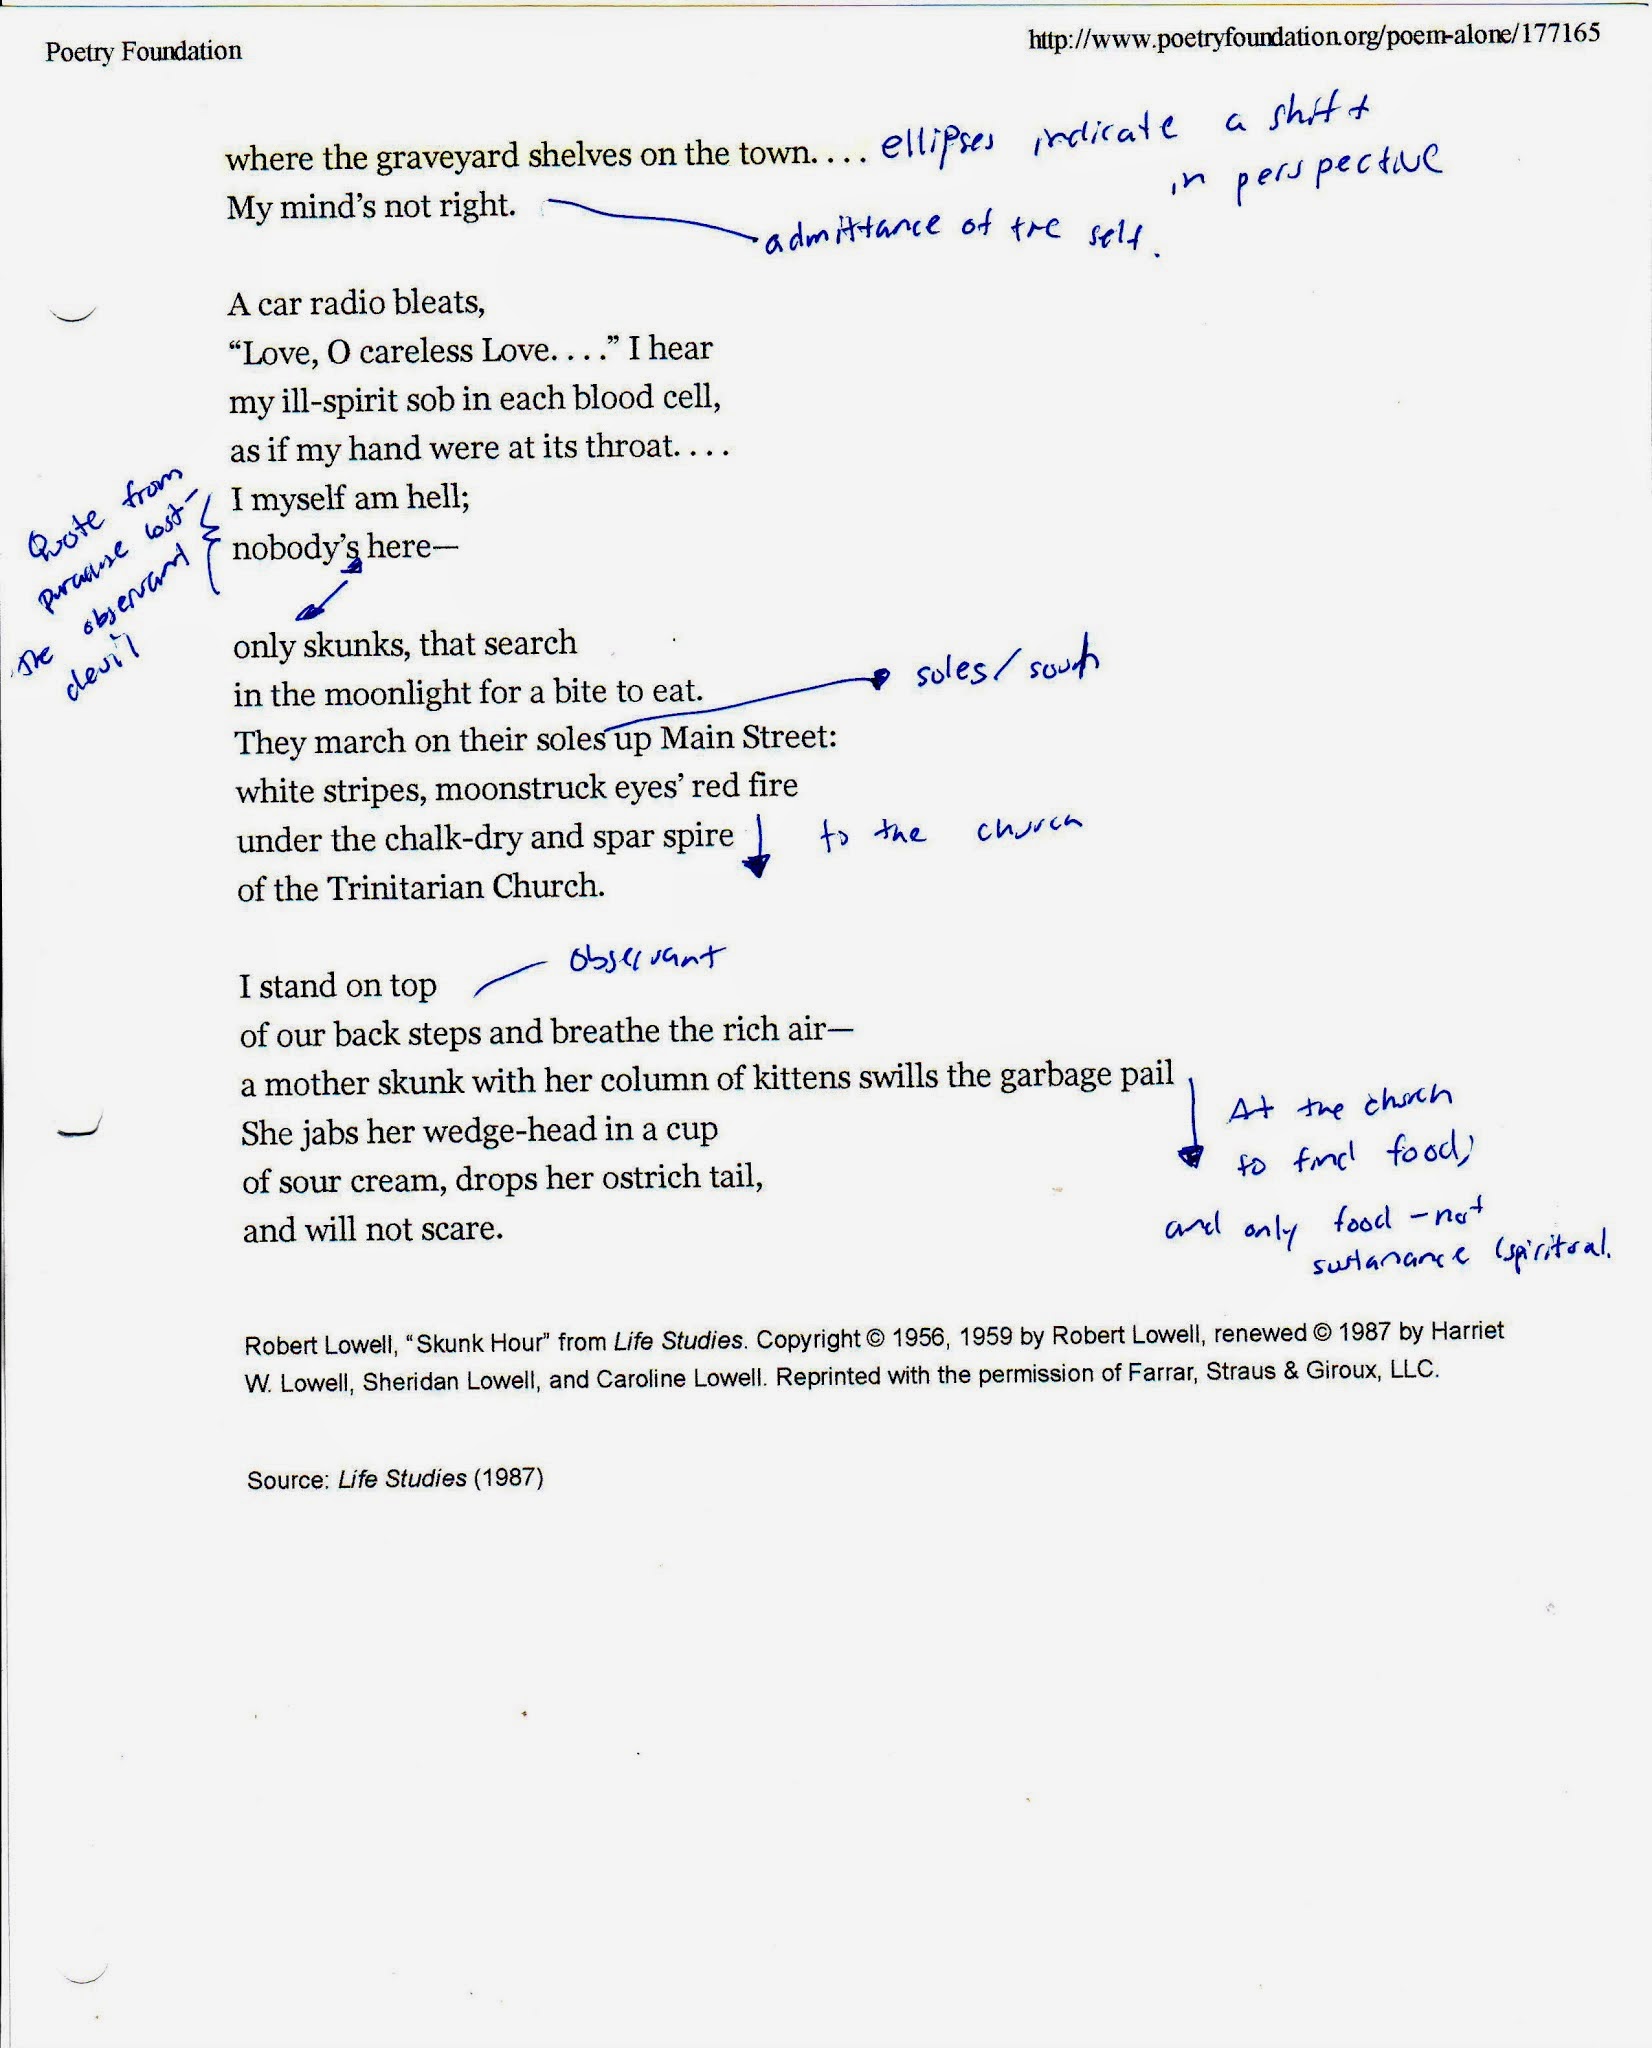 Poetry Foundation
http://www.poetryfoundation.org/poem-alone/177165
where the graveyard shelves on the town. . . . ellipses indicate a shift
in perspective
My mind's not right.
admittance of the self.
A car radio bleats,
“Love, O careless Love. . . .” I hear
my ill-spirit sob in each blood cell,
as if my hand were at its throat. . . .
I myself am hell;
nobody's here—
Quote from
paradise lost –
the observant
devil
only skunks, that search
in the moonlight for a bite to eat.
soles/
They march on their soles up Main Street:
white stripes, moonstruck eyes' red fire
under the chalk-dry and spar spire
to the church
of the Trinitarian Church.
observant
I stand on top
of our back steps and breathe the rich air—
a mother skunk with her column of kittens swills the garbage pail
She jabs her wedge-head in a cup
of sour cream, drops her ostrich tail,
and will not scare.
At the church
to find food,
and only food – not
sustanance (spiritual.
Robert Lowell, “Skunk Hour” from Life Studies. Copyright © 1956, 1959 by Robert Lowell, renewed © 1987 by Harriet
W. Lowell, Sheridan Lowell, and Caroline Lowell. Reprinted with the permission of Farrar, Straus & Giroux, LLC.
Source: Life Studies (1987)